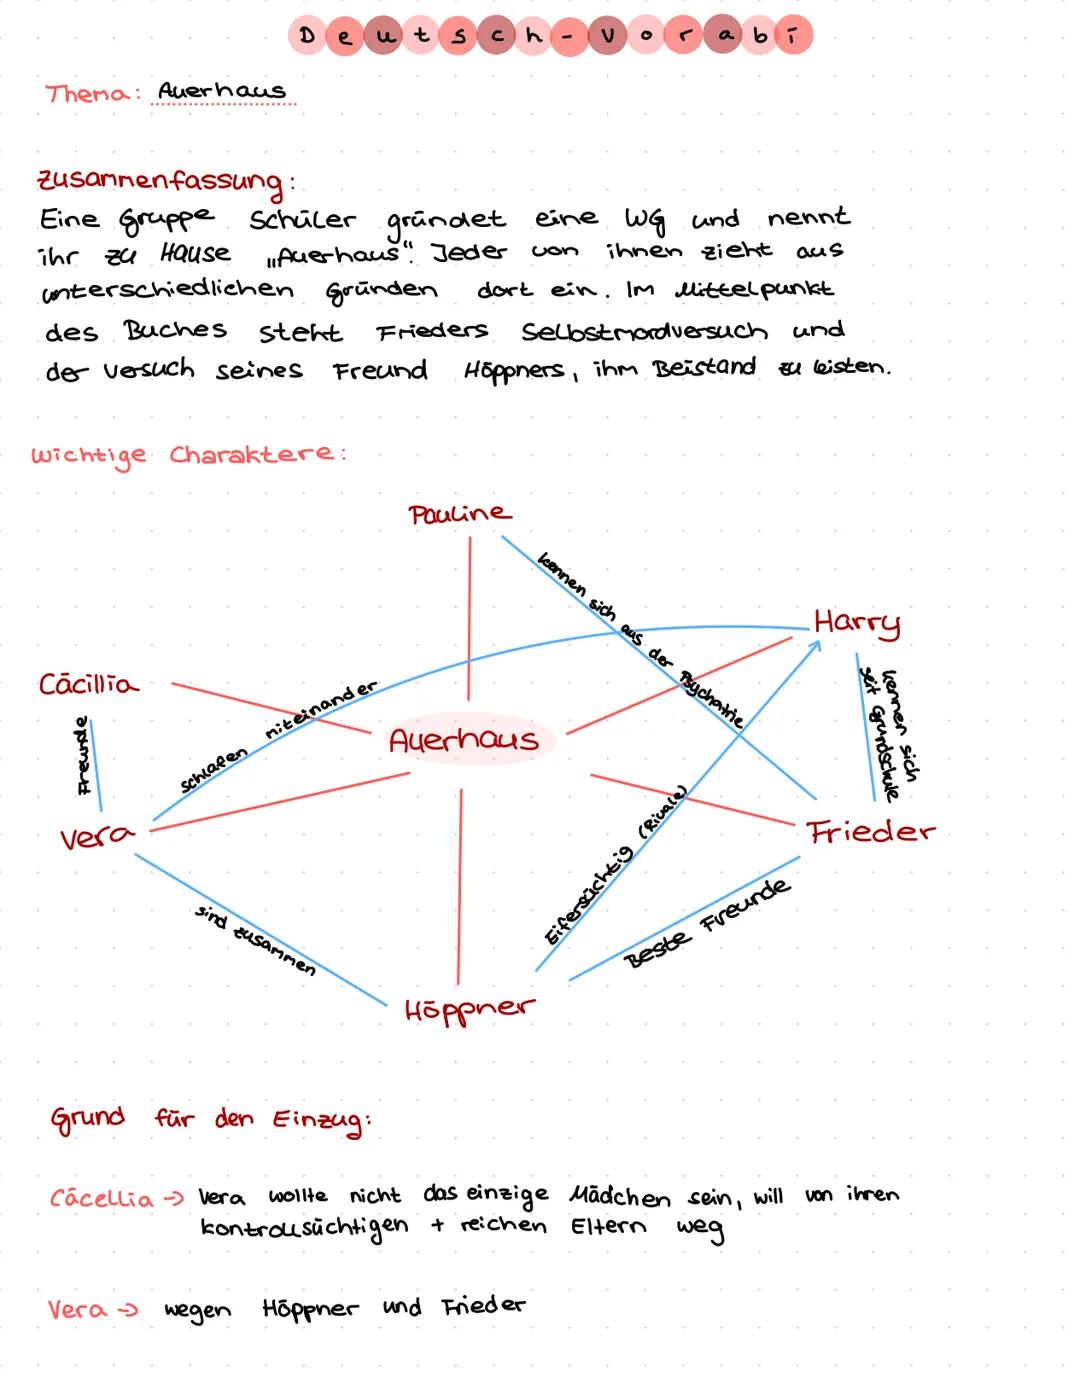 Deutsch-Vorabi
Thema: Auerhaus
Zusammenfassung:
Eine Gruppe Schüler gründet eine WG und nennt
ihr zu Hause „Auerhaus". Jeder von ihnen zieht aus
unterschiedlichen Gründen dort ein. Im Mittelpunkt
des Buches steht Frieders Selbstmordversuch und
der Versuch seines Freund Höppners, ihm Beistand zu leisten.
Wichtige Charaktere:
Pauline
kennen sich aus der Psychatrie
Harry
Cäcillia
schlafen miteinander
kennen sich
seit Grundschule
Freunde
Auerhaus
Vera
Eifersüchtig (Rivale)
Frieder
sind zusammen
Beste Freunde
Höppner
Grund für den Einzug:
Cäcellia → Vera wollte nicht das einzige Mädchen sein, will von ihren
kontrollsüchtigen + reichen Eltern weg
Vera → wegen Höppner und Frieder